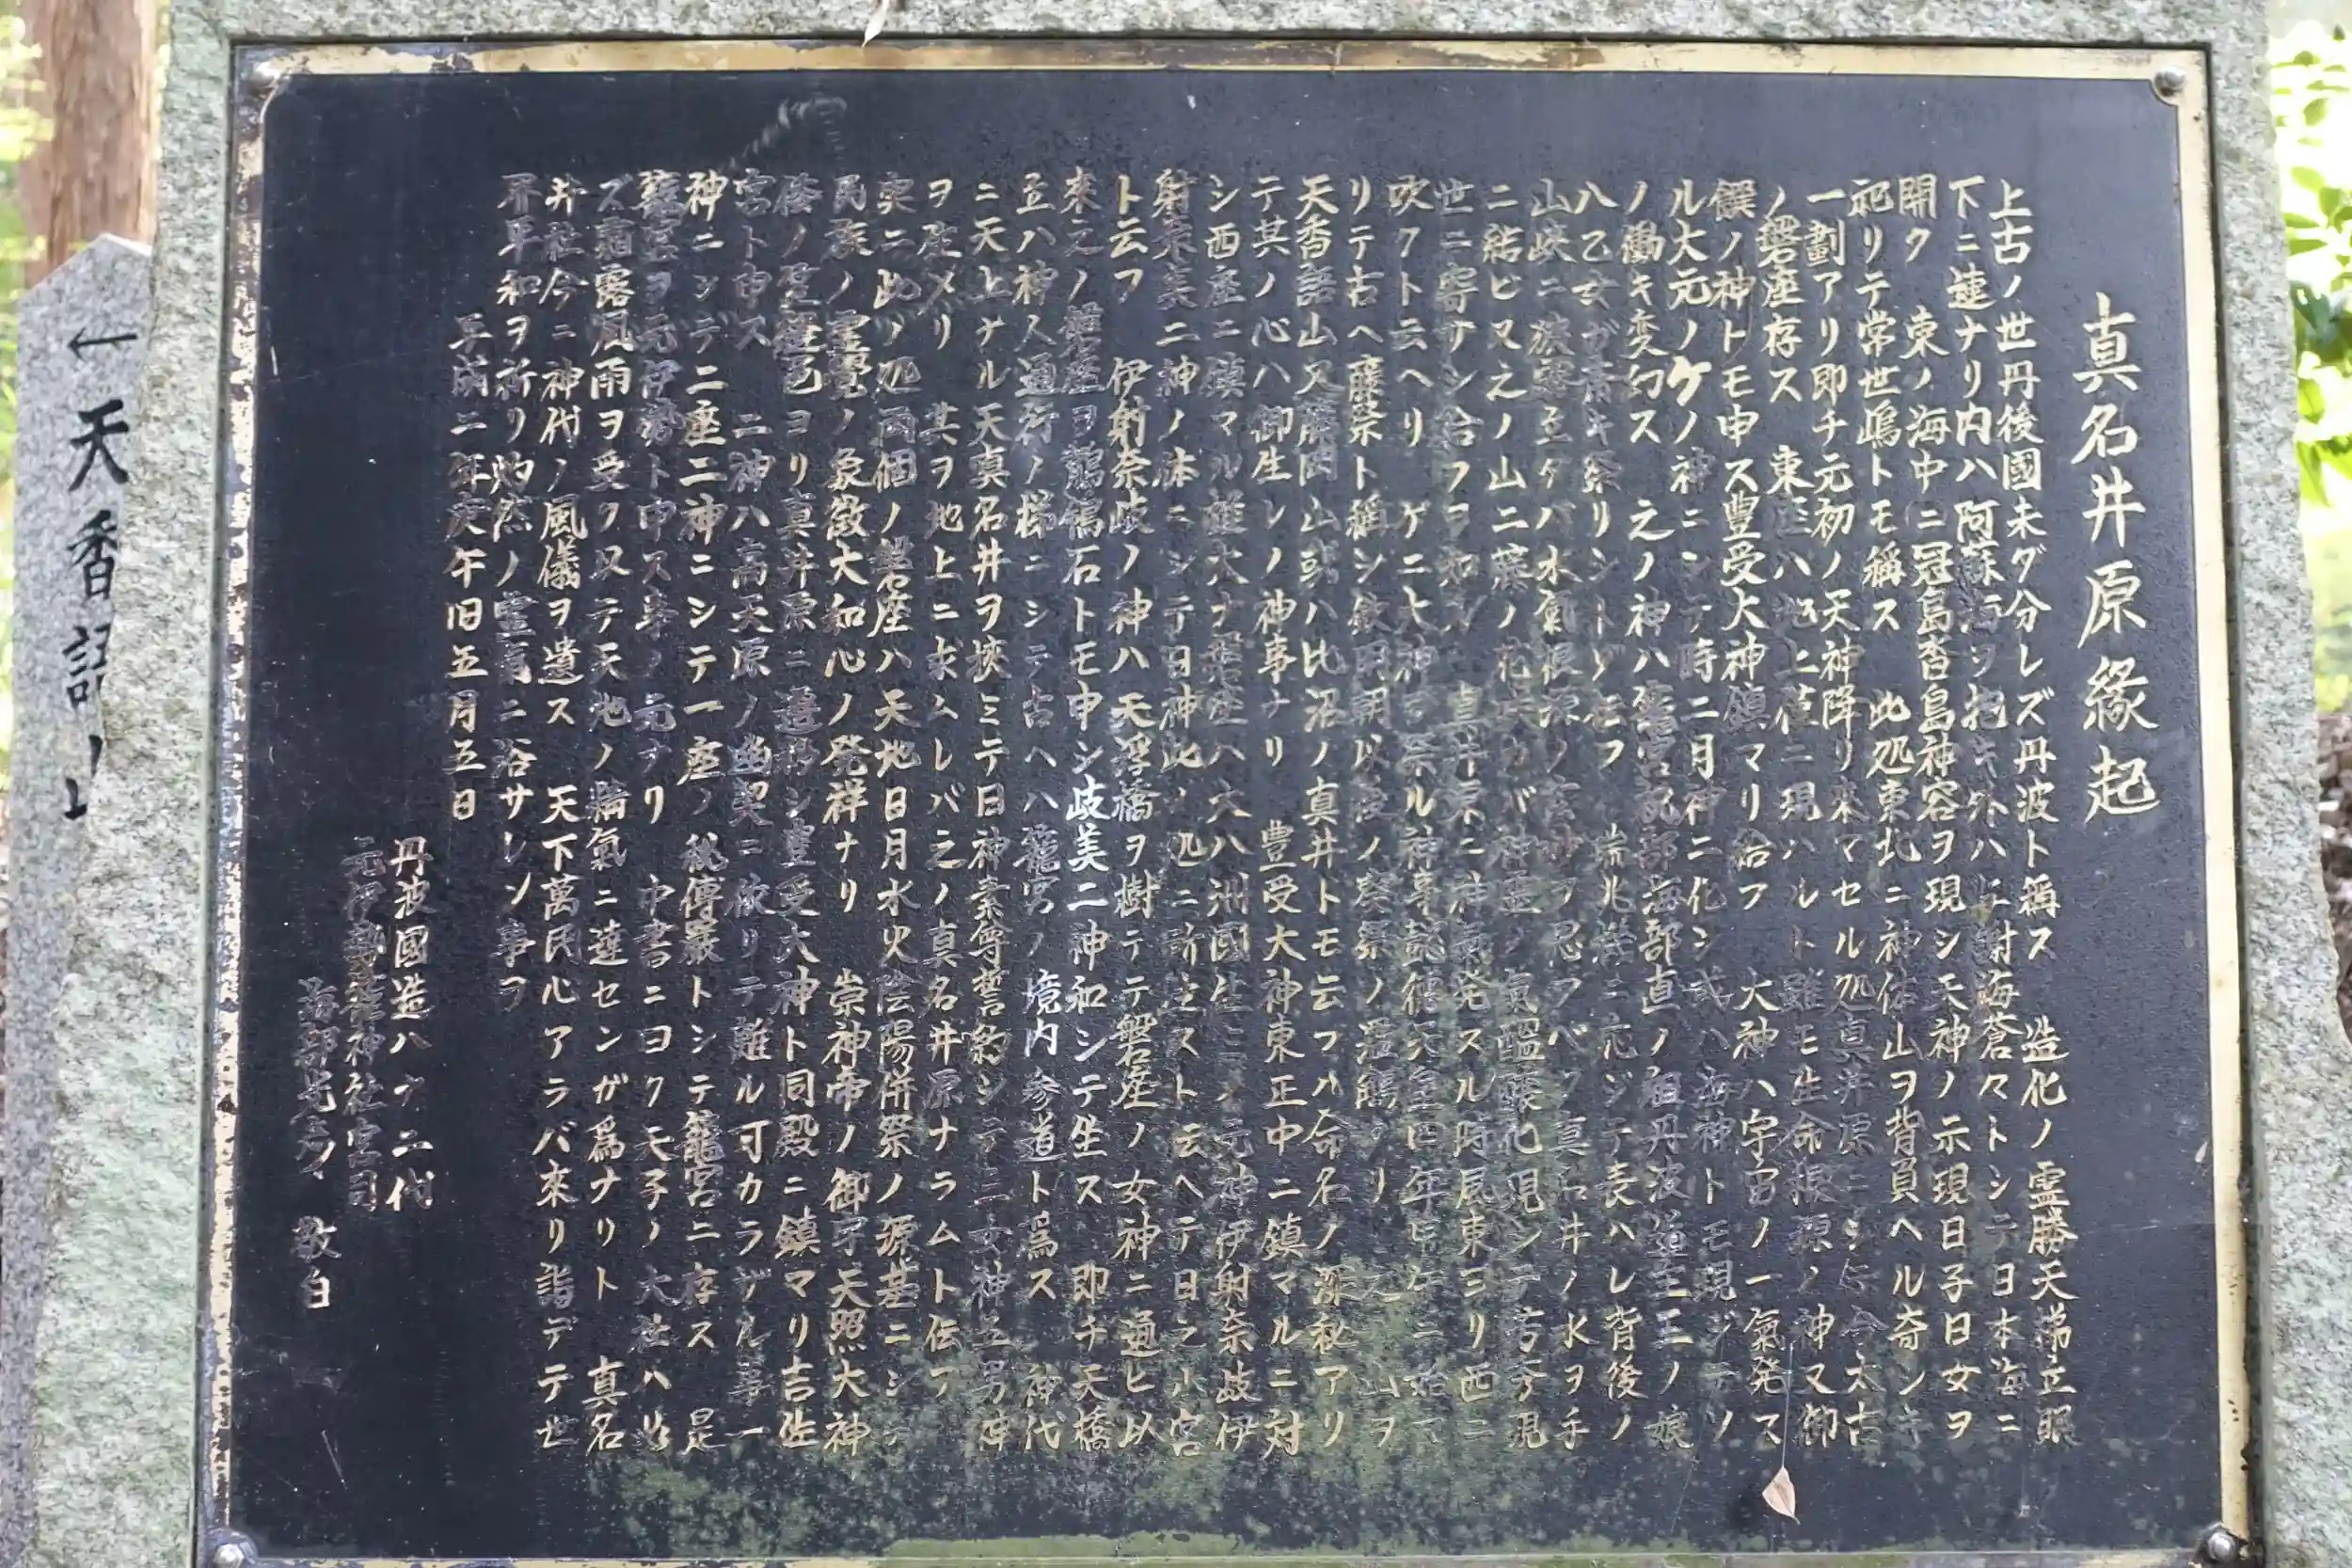 真名井原縁起
上古ノ世丹後國未ダ分レズ丹波ト稱ス 造化ノ霊勝天 立 照
下ニ連ナリ内ハ阿蘇海ヲ抱キ外ハ与謝海蒼々トシテ日本海ニ
開ク 東ノ海中ニ冠島沓島神容ヲ現シ天神ノ示現日子日女ヲ
祀リテ常世嶋トモ稱ス 此処東北ニ神体山ヲ背負ヘル奇シキ
一劃アリ即チ元初ノ天神降リ来マセル処真井原ニシテ今太古
ノ磐座存ス 東座ハ地上 ニ現ハルト雖モ生命根源ノ神又御
饌ノ神トモ申ス豊受大神鎮マリ給フ 大神ハ宇宙ノ一氣発ス
ル大元ノケノ神ニシテ時ニ月神ニ化シ或ハ海神トモ現ジテソ
ノ働キ変幻ス 之ノ神ハ 海部直ノ祖丹波道主王ノ娘
八乙女ガ斎キ祭リシトゾ云フ ニ元ジテ表ハレ背後ノ
山峡ニ 立タバ水氣根源ノ ヲ忍ブベク真名井ノ水ヲ手
ニ結ビ又之ノ山ニ藤ノ花 バ神霊ノ氣 化現シテ 見
世ニ寄サシ給フヲ知ル 真井原ニ神 発スル時辰東ヨリ西ニ
吹クト云ヘリ ゲニ大神ヲ祭ル神事 年 ニ始マ
リテ古ヘ藤祭ト稱シ欽明朝以後ノ葵祭ノ濫觴タリ 之ノ山ヲ
天香語山又藤岡山或ハ比沼ノ真井トモ云フハ命名ノ深秘アリ
テ其ノ心ハ御生レノ神事ナリ 豊受大神東正中ニ鎮マルニ対
シ西座ニ鎮マル 大ナ磐座ハ大八洲國生ミノ元神伊射奈岐伊
射奈美二神ノ体ニシテ日神此ノ処ニ ストモ云ヘテ日之小宮
ト云フ 伊射奈岐ノ神ハ天浮橋ヲ樹テテ磐座ノ女神ニ通ヒ以
來之ノ磐座ヲ鶺鴒石トモ申シ岐美二神和シテ生ス 即チ天橋
立ハ神人通行ノ梯ニシテ古ヘハ籠宮ノ境内参道ト為ス 神代
ニ天上ナル天真名井ヲ挟ミテ日神素尊誓約シテ三女神五男神
ヲ生メリ 其ヲ地上ニ求ムレバ之ノ真名井原ナラムト伝フ
実ニ此ノ処両個ノ磐座ハ天地日月水火陰陽併祭ノ源基ニシテ
民族ノ霊 ノ象徴大和心ノ発祥ナリ 崇神帝ノ御宇天照大神
倭ノ笠縫邑ヨリ真井原ニ遷 シ豊受大神ト同殿ニ鎮マリ吉佐
宮ト申ス 二神ハ高天原ノ幽契ニ依リテ離ル可カラザル事一
神ニシテ二座二神ニシテ一座ノ秘傳嚴トシテ籠宮ニ存ス 是
籠宮ヲ元伊勢ト申ス事ノ元ナリ 中書ニヨク天子ノ大社ハ必
ズ霜露風雨ヲ受ク又テ天地ノ精氣ニ達センガ為ナリト 真名
井社今ニ神代ノ風儀ヲ遺ス 天下萬民心アラバ來リ詣デテ世
界平和ヲ祈リ ノ霊 ニ浴サレン事ヲ
平成二年庚午旧五月五日
丹波國造八十二代
元伊勢籠神社宮司
海部光彦 敬白
←天香語山